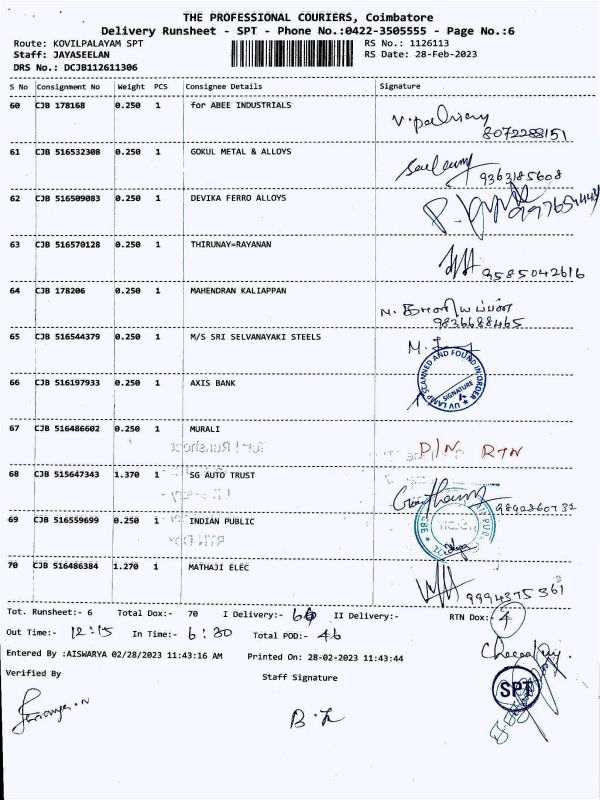 THE PROFESSIONAL COURIERS, Coimbatore
Delivery Runsheet - SPT - Phone No.:0422-3505555 - Page No.:6
Route: KOVILPALAYAM SPT
Staff: JAYASEELAN
DRS No.: DCJB112611306
RS No.: 1126113
RS Date: 28-Feb-2023
S No Consignment No Weight PCS Consignee Details Signature
60 CJB 178168 0.250 1 for ABEE INDUSTRIALS
8072288151
61 CJB 516532308 0.250 1 GOKUL METAL & ALLOYS
9363185608
62 CJB 516509083 0.250 1 DEVIKA FERRO ALLOYS
63 CJB 516570128 0.250 1 THIRUNAY=RAYANAN
9585042616
64 CJB 178206 0.250 1 MAHENDRAN KALIAPPAN
9836688465
65 CJB 516544379 0.250 1 M/S SRI SELVANAYAKI STEELS
66 CJB 516197933 0.250 1 AXIS BANK
UV LAMP SCANNED AND FOUND IN ORDER
SIGNATURE
67 CJB 516486602 0.250 1 MURALI
P/N RTN
68 CJB 515647343 1.370 1 SG AUTO TRUST
69 CJB 516559699 0.250 1 INDIAN PUBLIC
70 CJB 516486384 1.270 1 MATHAJI ELEC
9994375361
Tot. Runsheet:- 6 Total Dox:- 70 I Delivery:- 66 II Delivery:- RTN Dox:- 4
Out Time:- 12:15 In Time:- 6:30 Total POD:- 46
Entered By :AISWARYA 02/28/2023 11:43:16 AM Printed On: 28-02-2023 11:43:44
Verified By Staff Signature
SPT